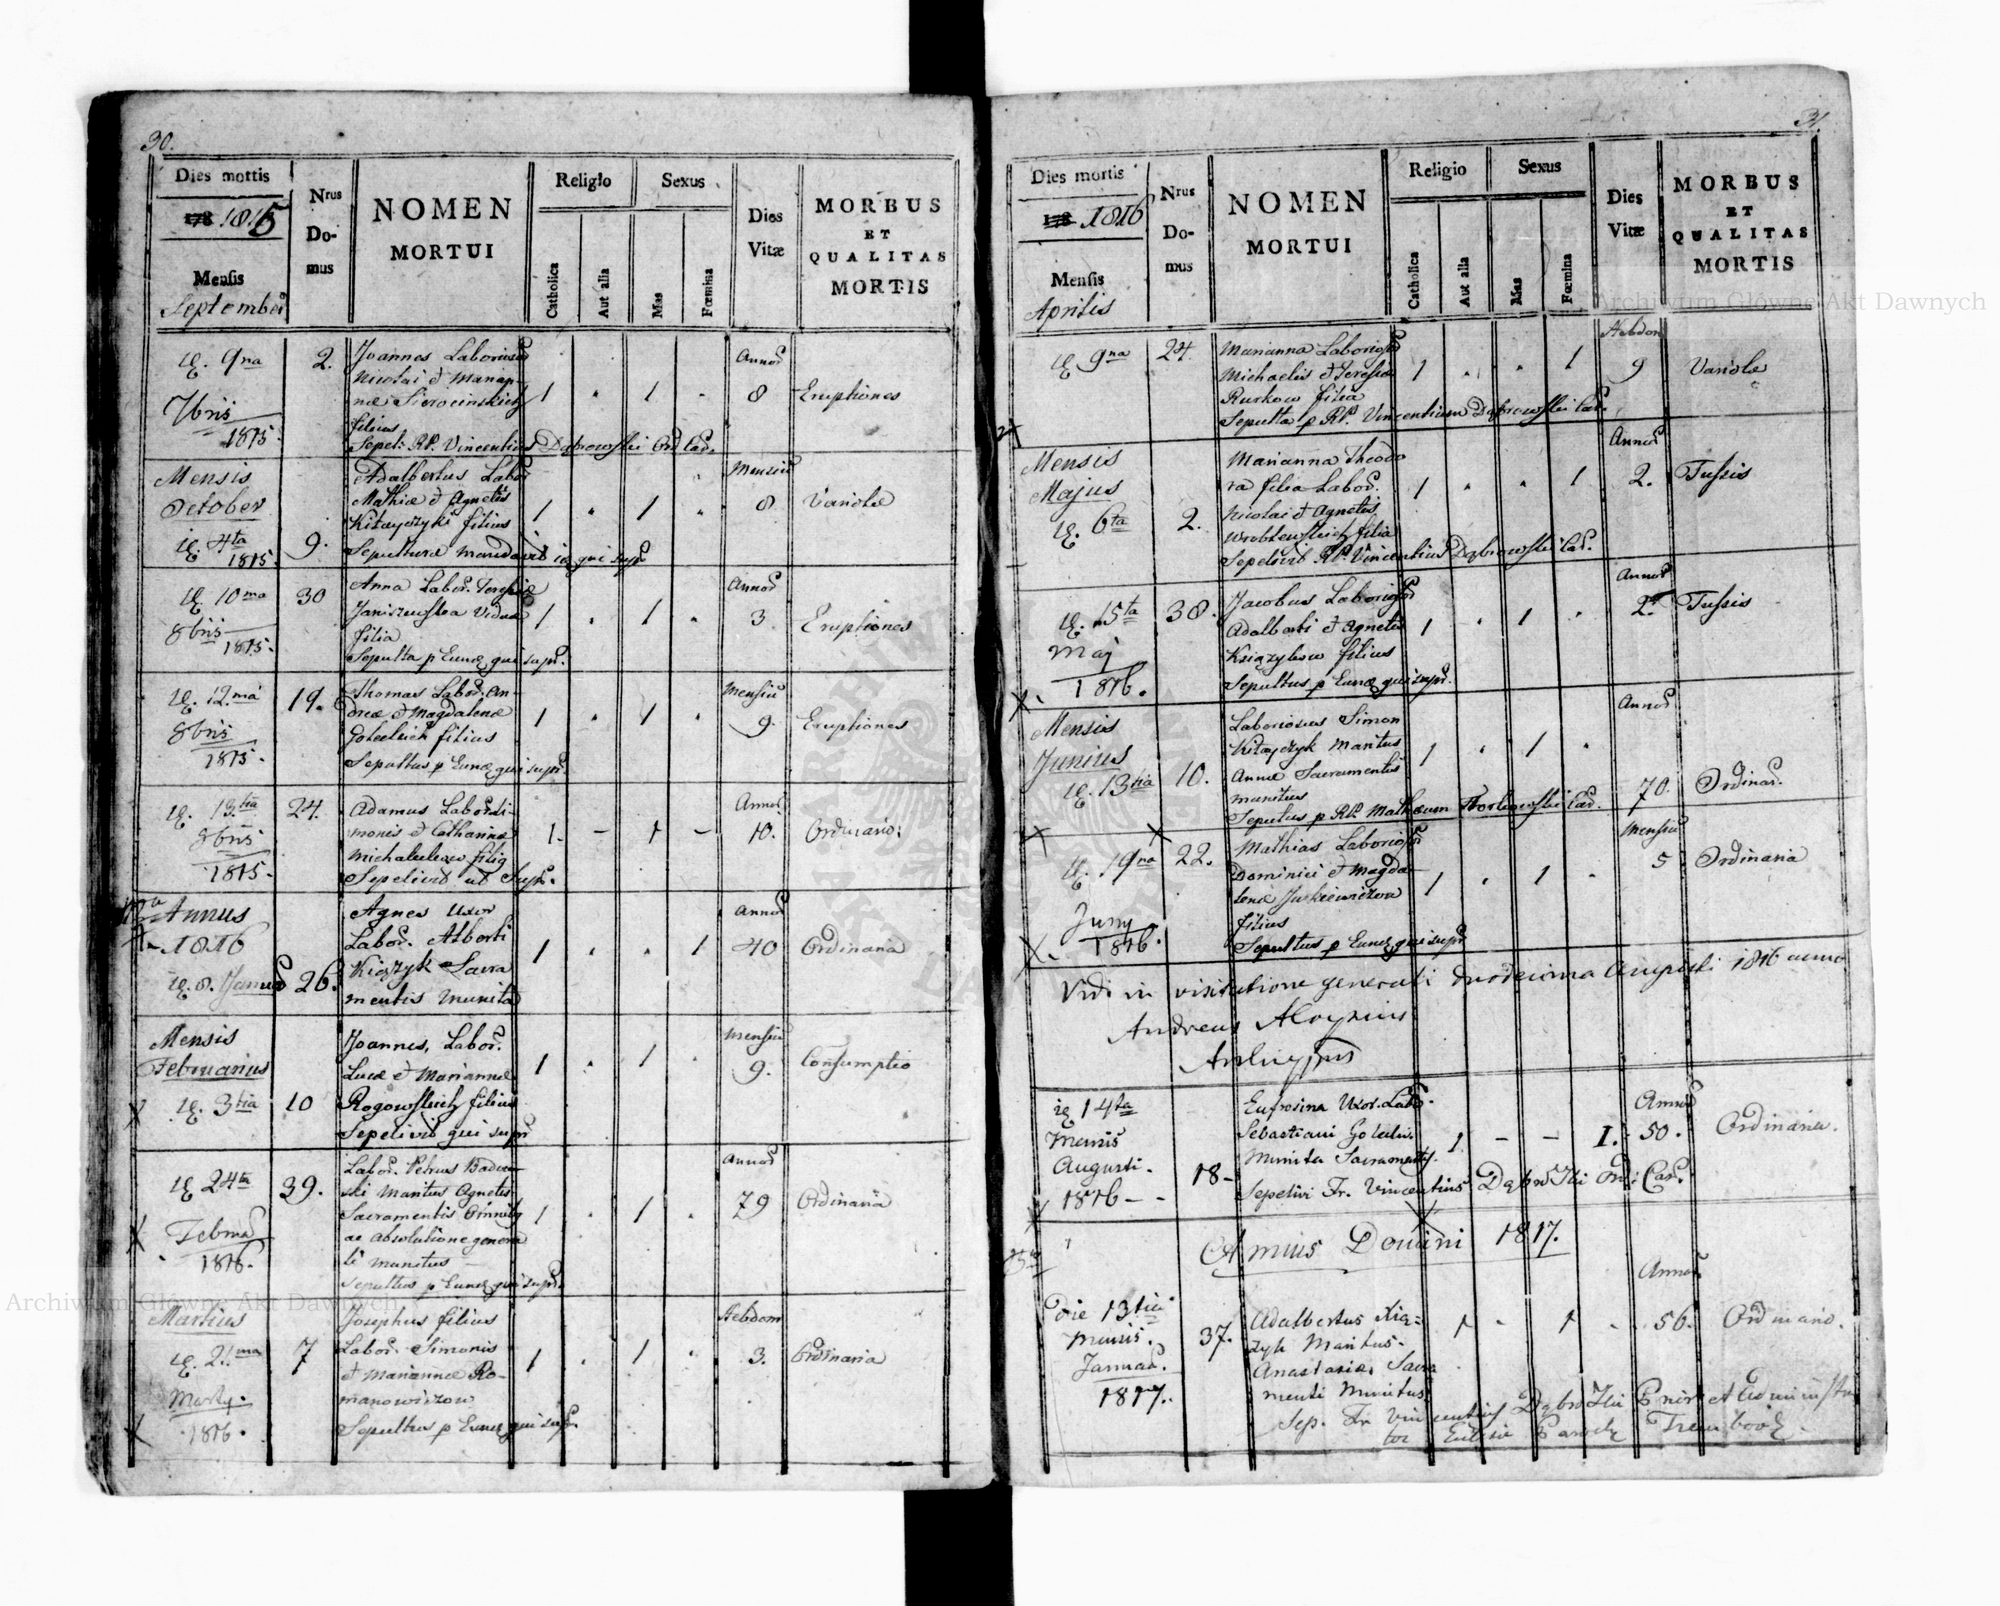 30.
Dies mortis
1815
Mensis
September
Nrus
Do-
mus
NOMEN
MORTUI
Religio
Catholica
Aut alia
Sexus
Mas
Fœmina
Dies
Vitæ
MORBUS
ET
QUALITAS
MORTIS
9na
7bris
1815.
2.
Joannes Laborios
Nicolai et Marian-
næ Sierocinskich
filius
Sepel: RP. Vincentius Dąbrowski Ord Car.
1 . 1 .
Annor
8
Eruptiones
Mensis
October
4ta
1815.
9.
Adalbertus Labor
Mathiæ et Agnetis
Kitayczyki filius
Sepulturæ mandavit is qui supr
1 . 1 .
Mensiu
8
Variolæ
10ma
8bris
1815.
30
Anna Labor. Teresiæ
Janiszewska Viduæ
filia
Sepulta p Eund qui supr.
1 . 1 .
Annor
3
Eruptiones
12.ma
8bris
1815.
19.
Thomas Labor. An-
dreæ et Magdalenæ
filius
Sepultus p Eund qui supr.
1 . 1 .
Mensiu
9.
Eruptiones
13tia
8bris
1815.
24.
Adamus Labor Si-
monis et Catharinæ
Sepelivit ut Supr.
1. - 1 -
Annor
10.
Ordinario:
Annus
1816
8. Januar
26.
Agnes Uxor
Labor. Alberti
Kiązyk Sacra
mentis munita
1 . . 1
Annor
40
Ordinaria
Mensis
Februarius
3tia
10
Joannes, Labor.
Lucæ et Mariannæ
Rogowskich filius
Sepelivit qui supr
1 . 1 .
Mensiu
9.
Consumptio
24ta
1816.
39.
Labor. Petrus
ski Maritus Agnetis
Sacramentis Omnib
ac absolutione genera
li munitus
Sepultus p Eund qui supr.
1 . 1 .
Annor
79
Ordinaria
Martius
1816.
7
Josephus filius
Labor. Simonis
et Mariannæ Ro-
manowiczow
Sepultus p Eund qui supr.
1 . 1 .
Hebdom
3.
Ordinaria
31.
Dies mortis
1816
Mensis
Aprilis
Nrus
Do-
mus
NOMEN
MORTUI
Religio
Catholica
Aut alia
Sexus
Mas
Fœmina
Dies
Vitæ
MORBUS
ET
QUALITAS
MORTIS
9na
24.
Marianna Laborios
Michaelis et Teresiæ
filia
Sepulta p RP. Vincentium Dąbrowski Car.
1 . . 1
Hebdom
9
Variolæ
Mensis
Majus
6ta
2.
Marianna Theodo
ra filia Labor.
Nicolai et Agnetis
filia
Sepelivit RP. Vincentius Dąbrowski Car.
1 . . 1
Annor
2.
Tussis
15ta
Maj
1816.
38.
Jacobus Laborios
Adalberti et Agnetis
filius
Sepultus p Eund qui supr.
1 . 1 .
Annor
2.
Tussis
Mensis
Junius
13tia
10.
Laboriosus Simon
Kitayczyk Maritus
Annæ Sacramentis
munitus
Sepultus p RP. Mathæum
1 . 1 .
Annor
70.
Ordinar.
19na
Juny
1816.
22.
Mathias Laborios
Dominici et Magda-
lenæ Jurkiewiczow
filius
Sepultus p Eund qui supr
1 . 1 .
Mensiu
5
Ordinaria
Vidi in visitatione generali duodecima Augusti 1816 anno
Andreas Aloysius
14ta
Mensis
Augusti.
1816 - -
18-
Eufrosina Uxor. Labo.
Sebastiani
Munita Sacramentis.
Sepelivi Fr. Vincentius
1 - - 1.
Annor
50.
Ordinaria.
Annus Domini 1817.
Die 13tia
Mensis.
Januar.
1817.
37.
Adalbertus Kią=
zyk Maritus-
Anastasiæ Sacra
menti Munitus
Sep. Fr Vincentius
1 - 1 .
Annor
56.
Ordinario.
Archiwum Główne Akt Dawnych
Archiwum Główne Akt Dawnych